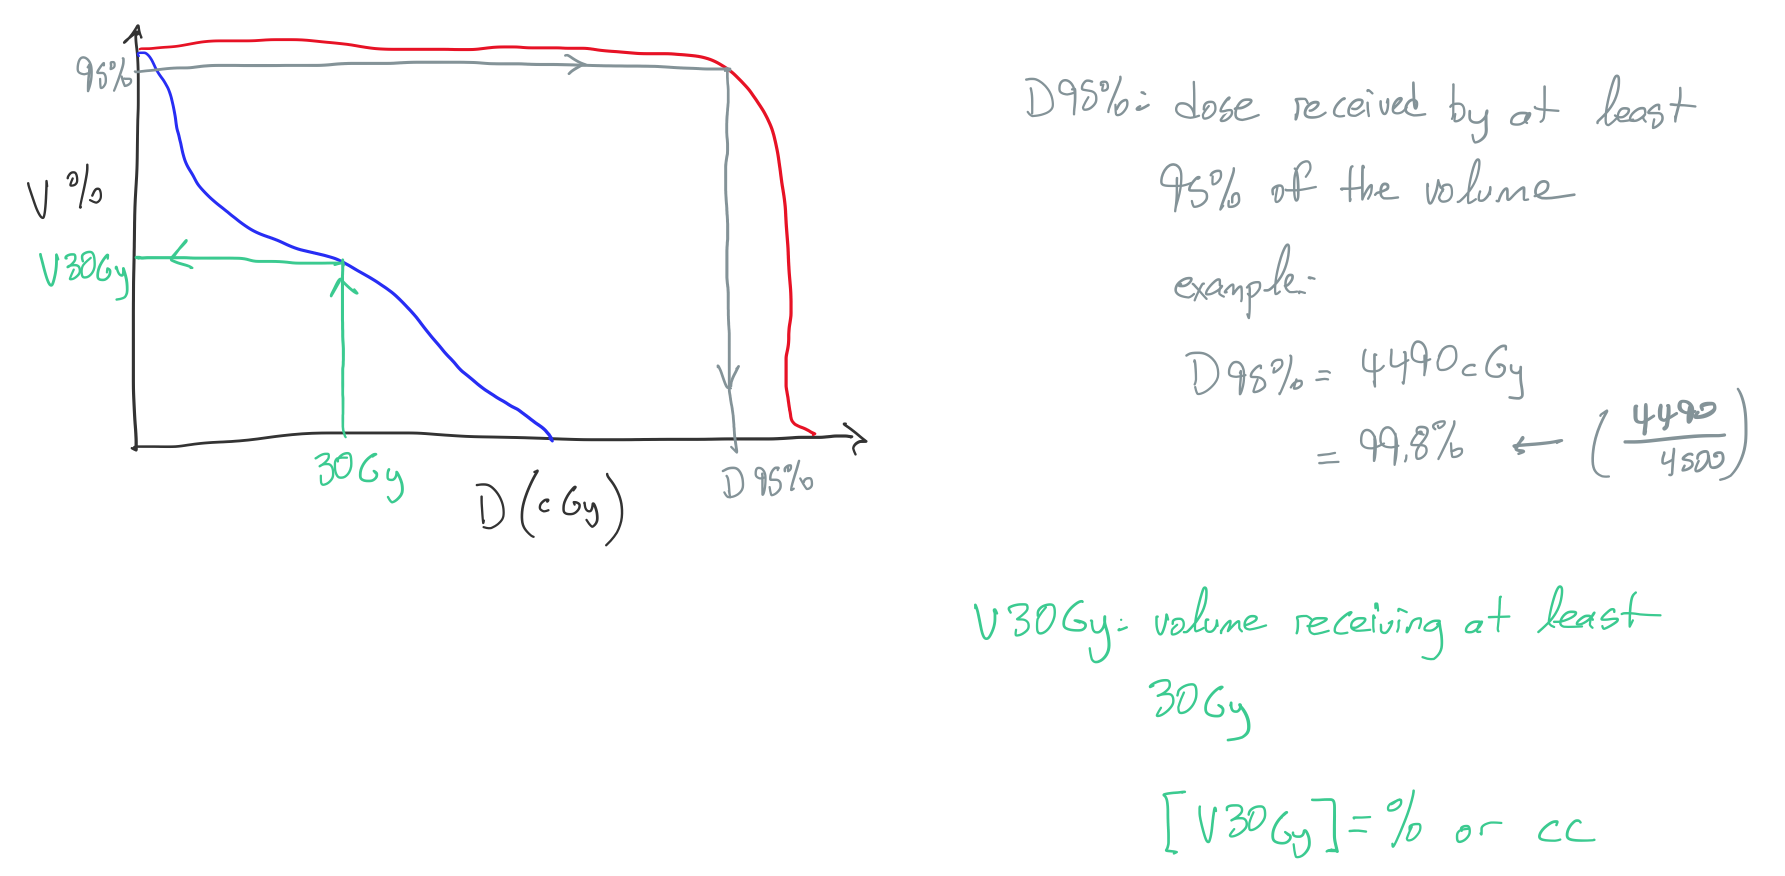 95%
V %
V30Gy
30Gy
D (cGy)
D95%
D95%: dose received by at least
95% of the volume
example:
D95% = 4490cGy
= 99.8% ← (4490/4500)
V30Gy: volume receiving at least
30Gy
[V30Gy] = % or cc